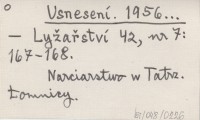 Usnesení. 1956...
— Lyžařství 42, nr 7:
167-168.
Narciarstwo w Tatrz.
Łomnicy.